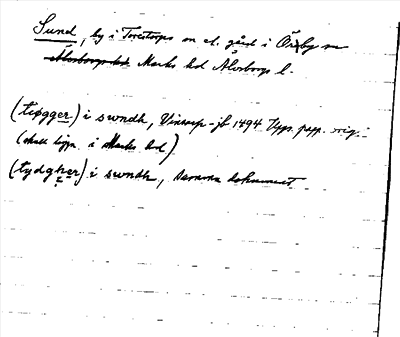 Sund, by i Torestorps sn el. gård i Örby sn
Marks hd Älvsborgs l.
(tiøgger) i swndh, Vinsarp-jb 1494 Upps. papp. orig.
(skall ligga i Marks hd)
(tydgher) i swndh, samma dokument